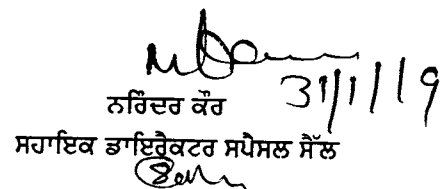 31/1/19
ਨਰਿੰਦਰ ਕੌਰ
ਸਹਾਇਕ ਡਾਇਰੈਕਟਰ ਸਪੈਸਲ ਸੈੱਲ